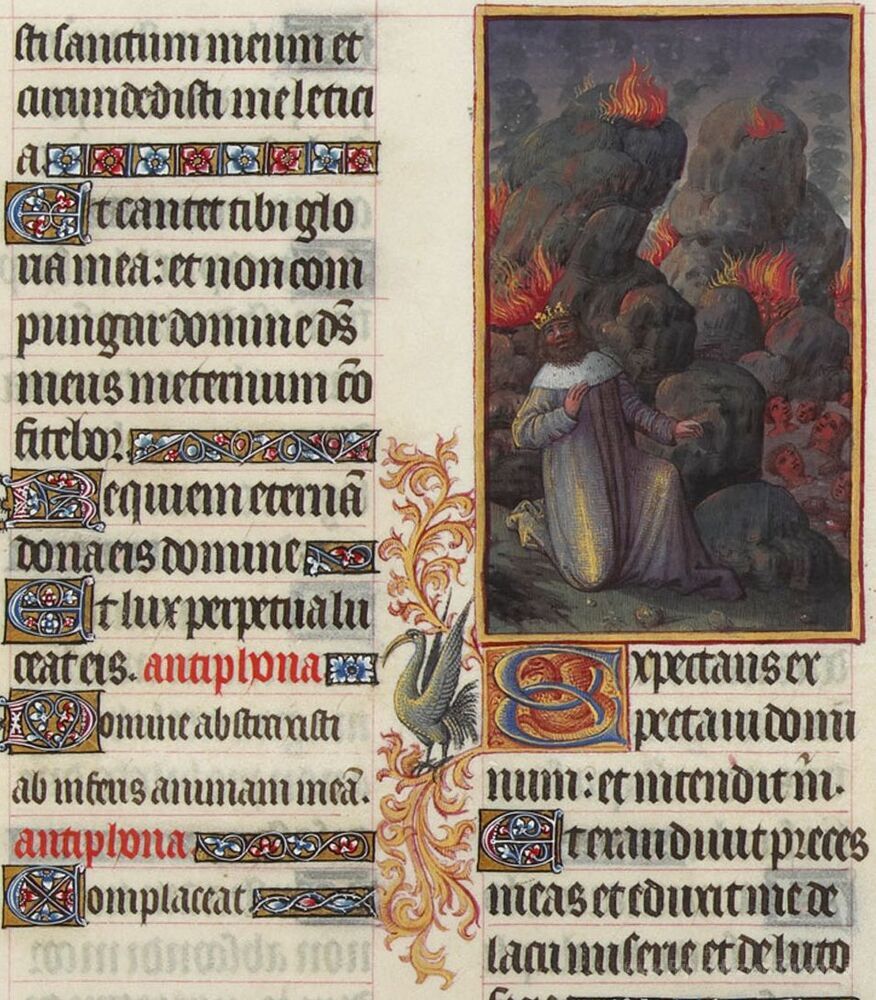 sti sanctum meum et
circundedisti me letici
a.
Et cantet tibi glo
ria mea: et non com
pungar domine ds̄
meus ineternum cō
fitebor.
Requiem eternā
dona eis domine
Et lux perpetua lu
ceat eis. antiphona
Domine abstraxisti
ab inferis animam meā.
antiphona
Complaceat.
Expectans ex
pectaui domi
num: et intendit m̄.
Et exaudiuit preces
meas et eduxit me de
lacu miserie et de luto